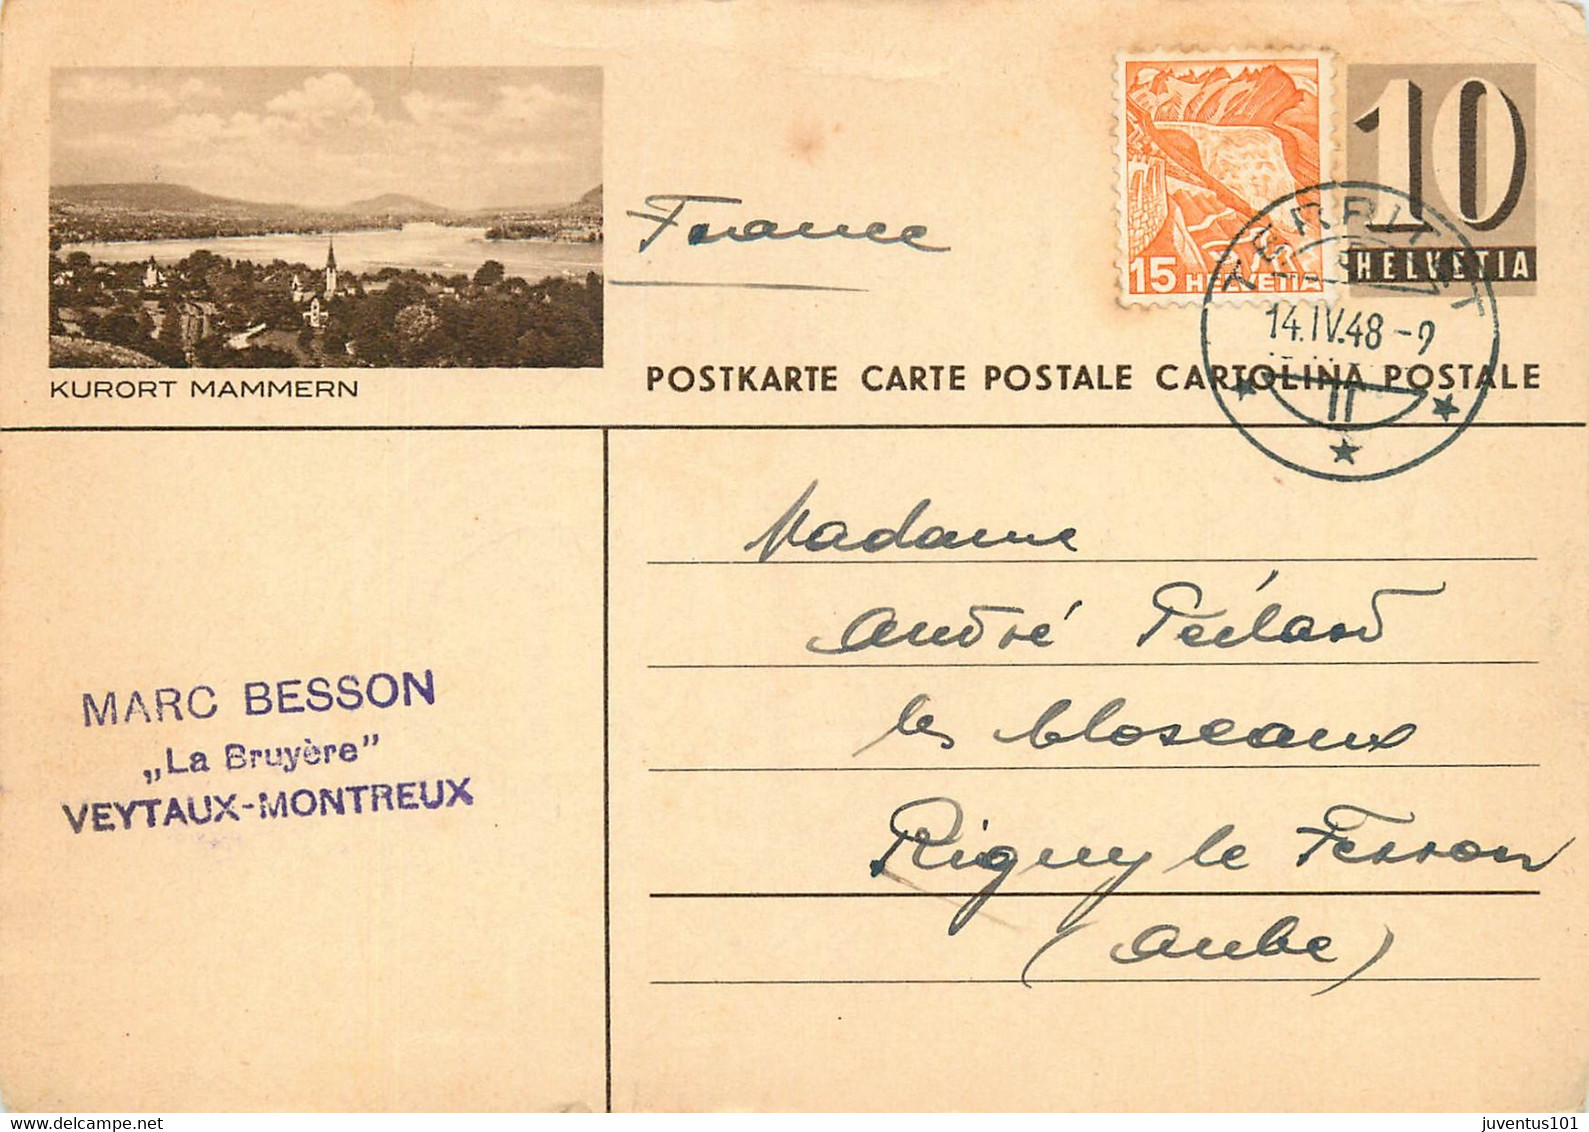 France
15
HELVETIA
10
HELVETIA
TERRITET
14.IV.48-9
KURORT MAMMERN
POSTKARTE CARTE POSTALE CARTOLINA POSTALE
Madame
André Péilard
les bloseaux
Rigny le Ferron
(Aube)
MARC BESSON
„La Bruyère”
VEYTAUX-MONTREUX
juventus101